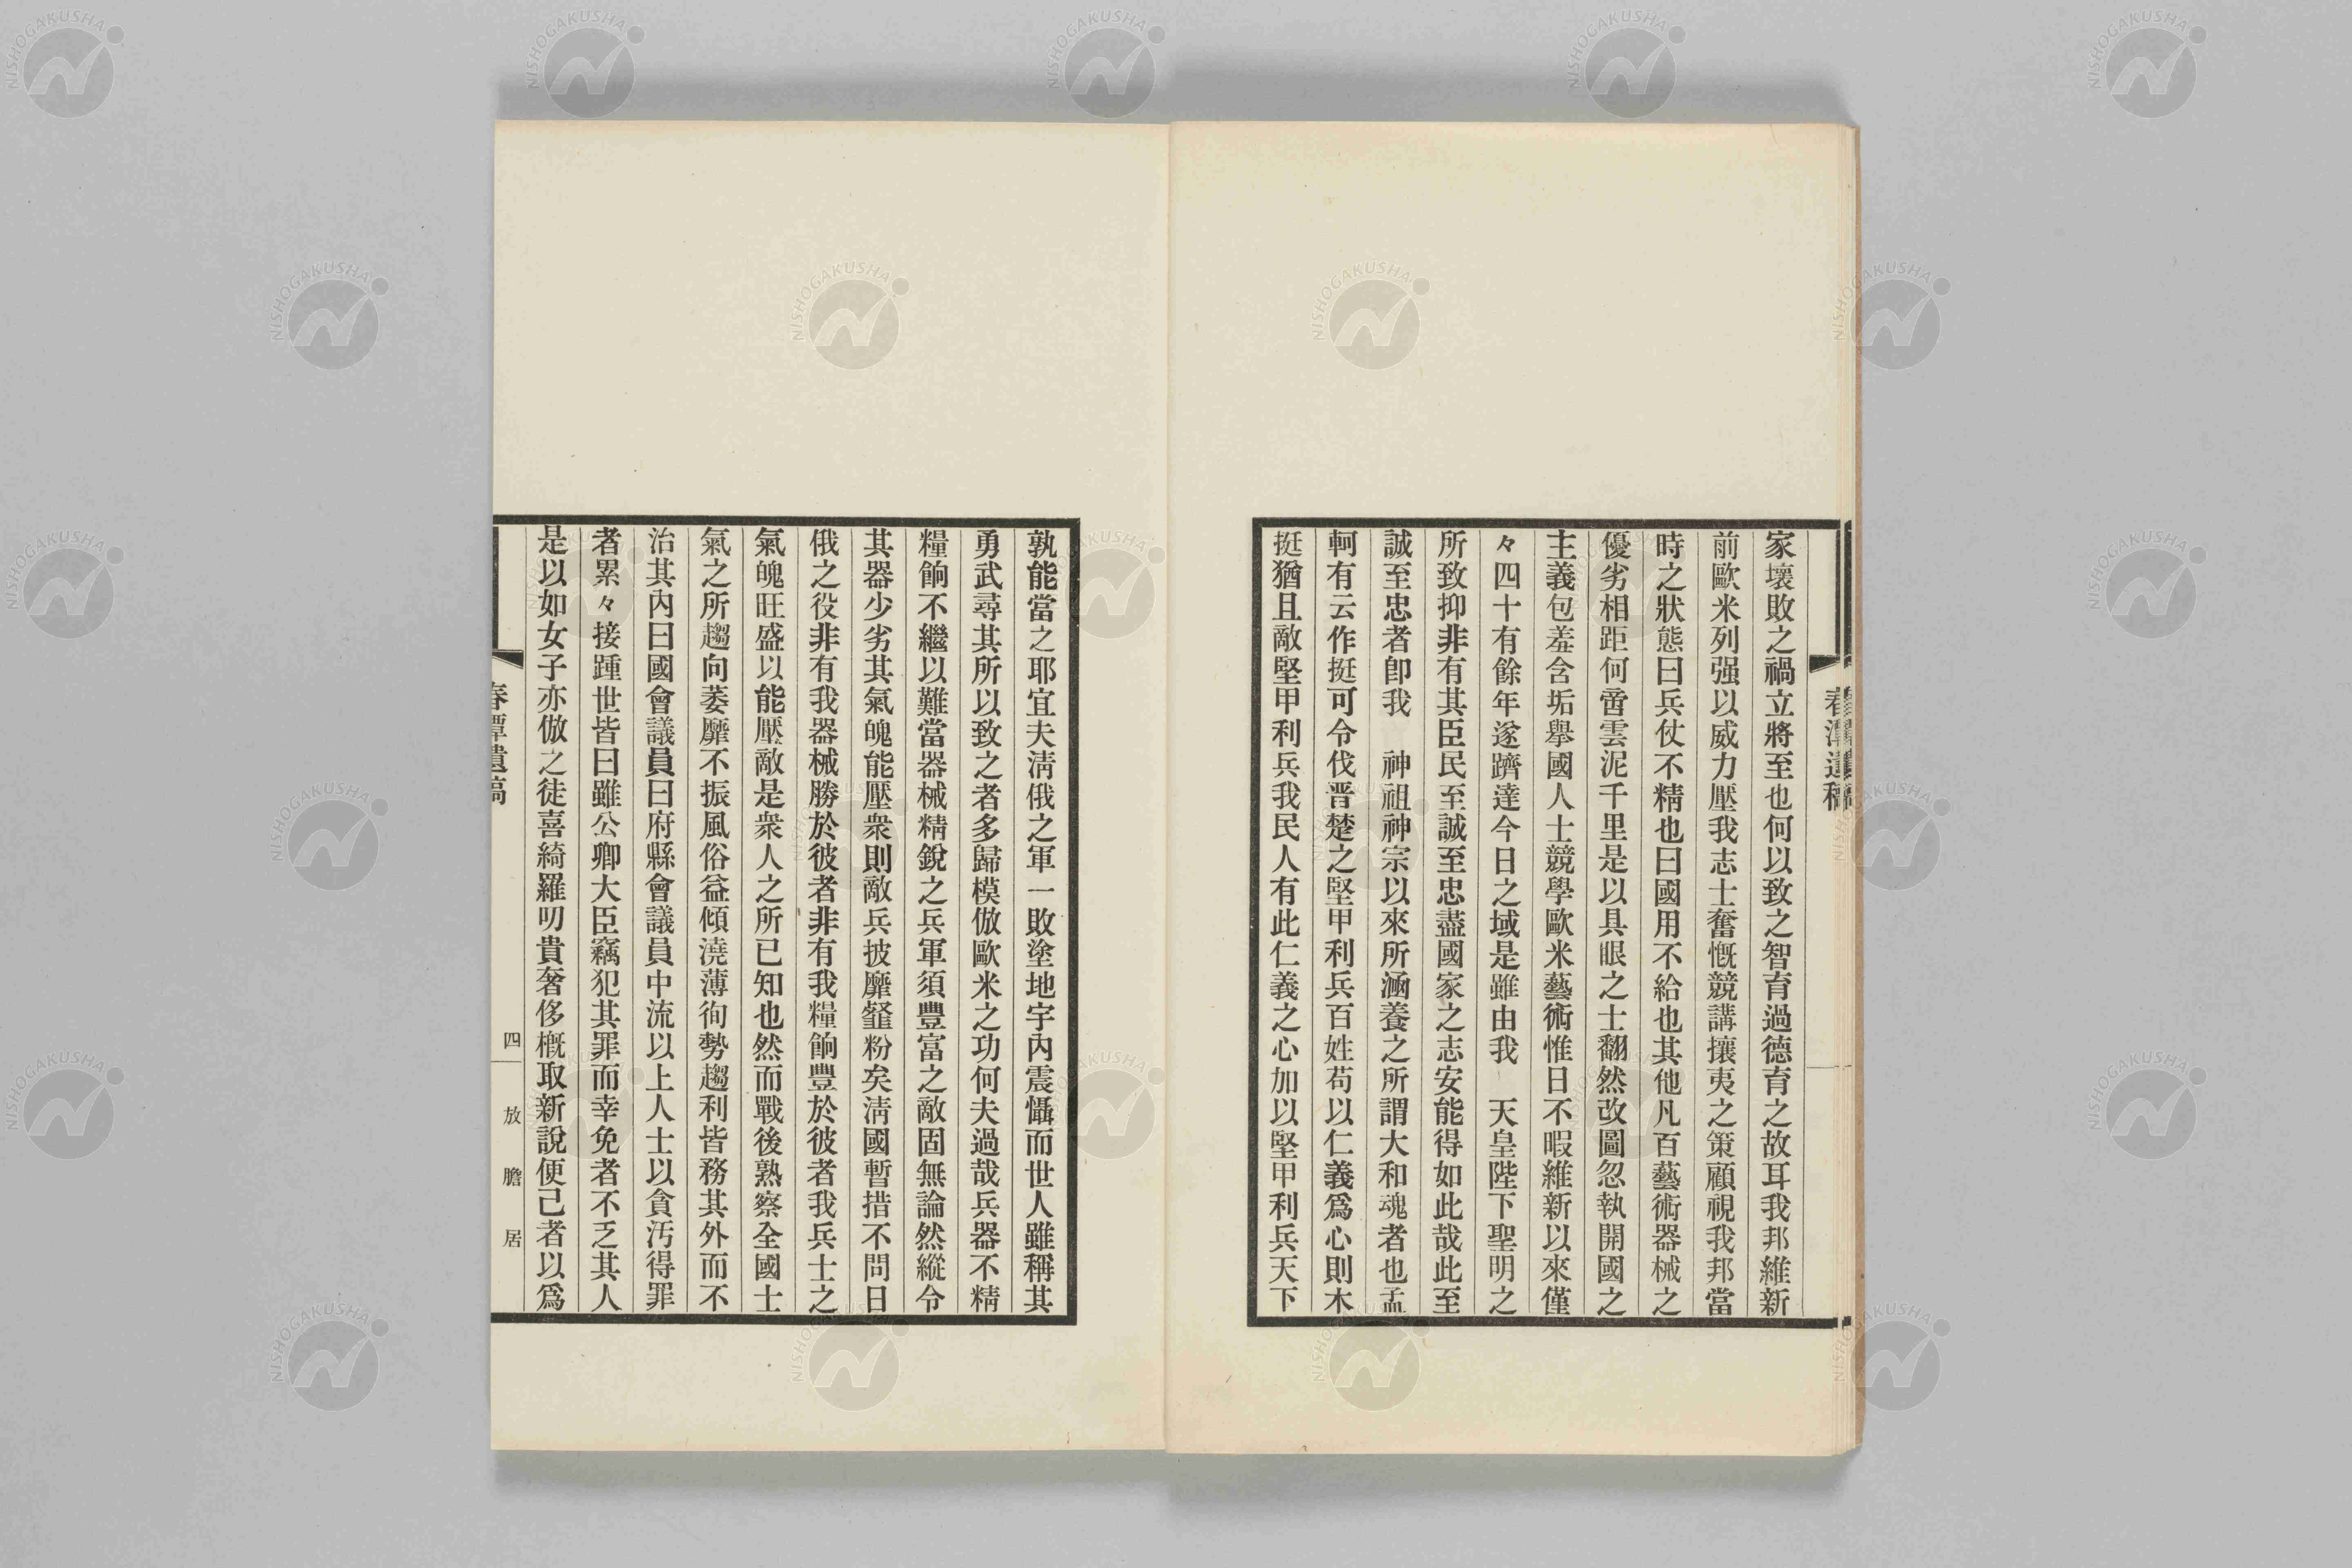 家壞敗之禍立將至也何以致之智育過德育之故耳我邦維新
前歐米列强以威力壓我志士奮慨競講攘夷之策顧視我邦當
時之狀態曰兵仗不精也曰國用不給也其他凡百藝術器械之
優劣相距何啻雲泥千里是以具眼之士翻然改圖忽執開國之
主義包羞含垢擧國人士競學歐米藝術惟日不暇維新以來僅
々四十有餘年遂躋達今日之域是雖由我　天皇陛下聖明之
所致抑非有其臣民至誠至忠盡國家之志安能得如此哉此至
誠至忠者卽我　神祖神宗以來所涵養之所謂大和魂者也孟
軻有云作挺可令伐晋楚之堅甲利兵百姓苟以仁義爲心則木
挺猶且敵堅甲利兵我民人有此仁義之心加以堅甲利兵天下
春潭遺稿
孰能當之耶宜夫淸俄之軍一敗塗地宇內震懾而世人雖稱其
勇武尋其所以致之者多歸模倣歐米之功何夫過哉兵器不精
糧餉不繼以難當器械精銳之兵軍須豐富之敵固無論然縱令
其器少劣其氣魄能壓衆則敵兵披靡韲粉矣淸國暫措不問日
俄之役非有我器械勝於彼者非有我糧餉豐於彼者我兵士之
氣魄旺盛以能壓敵是衆人之所已知也然而戰後熟察全國士
氣之所趨向萎靡不振風俗益傾澆薄徇勢趨利皆務其外而不
治其內曰國會議員曰府縣會議員中流以上人士以貪汚得罪
者累々接踵世皆曰雖公卿大臣竊犯其罪而幸免者不乏其人
是以如女子亦倣之徒喜綺羅叨貴奢侈槪取新說便己者以爲
春潭遺稿
四
放膽居
NISHOGAKUSHA